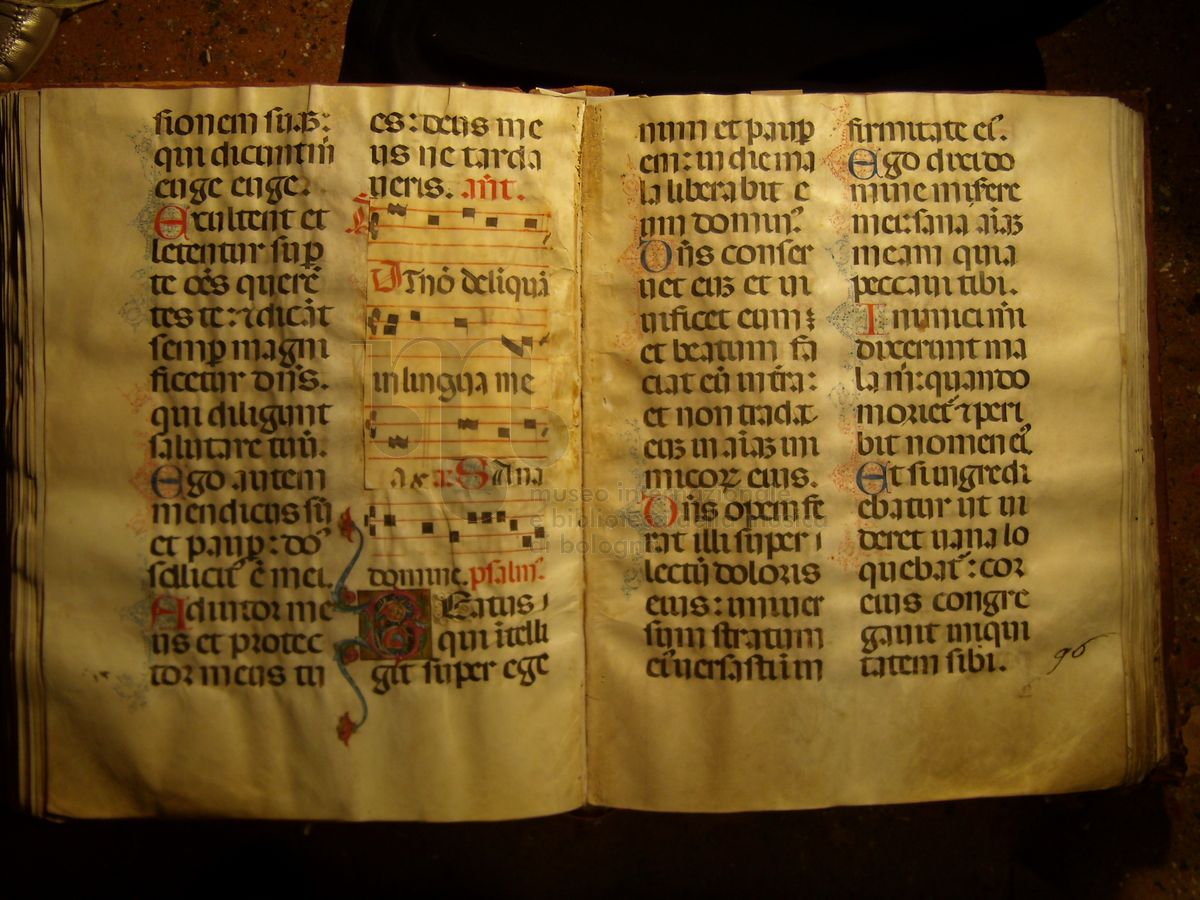 sionem suā3:
qui dicunt m̄
euge euge.
Exultent et
letentur sup̄
te oēs querē
tes te: ⁊ dicāt
semp̄ magni
ficetur dn̄s.
qui diligunt
salutare tuū.
Ego autem
mendicus sū
et paup̄: do᷒
sollicit᷒ ē mei.
Adiutor me
us et protec
tor meus tu
es: deus me
us ne tarda
ueris. an̄t.
Ut nō deliquā
in lingua me
a Sana
domine. psalm᷒.
Beatus
qui ītelli
git super ege
num et paup̄
em: in die ma
la liberabit e
um domin᷒.
Dn̄s conser
uet eu3 et ui
uificet eum:
et beatum fa
ciat eū in tr̄a:
et non tradat
eu3 in aīa3 ini
micoꝝ eius.
Dn̄s opem fe
rat illi super
lectū doloris
eius: uniuer
sum stratum
ei᷒ uersasti in
firmitate ei᷒.
Ego dixi do
mine misere
mei: sana aīa3
meam quia
peccaui tibi.
Inimici m̄i
dixerunt ma
la m̄: quando
moriet᷑ ⁊ peri
bit nomen ei᷒
Et si ingredi
ebatur ut ui
deret uana lo
quebat᷑: cor
eius congre
gauit iniqui
tatem sibi.
96
museo internazionale
e biblioteca della musica
di bologna